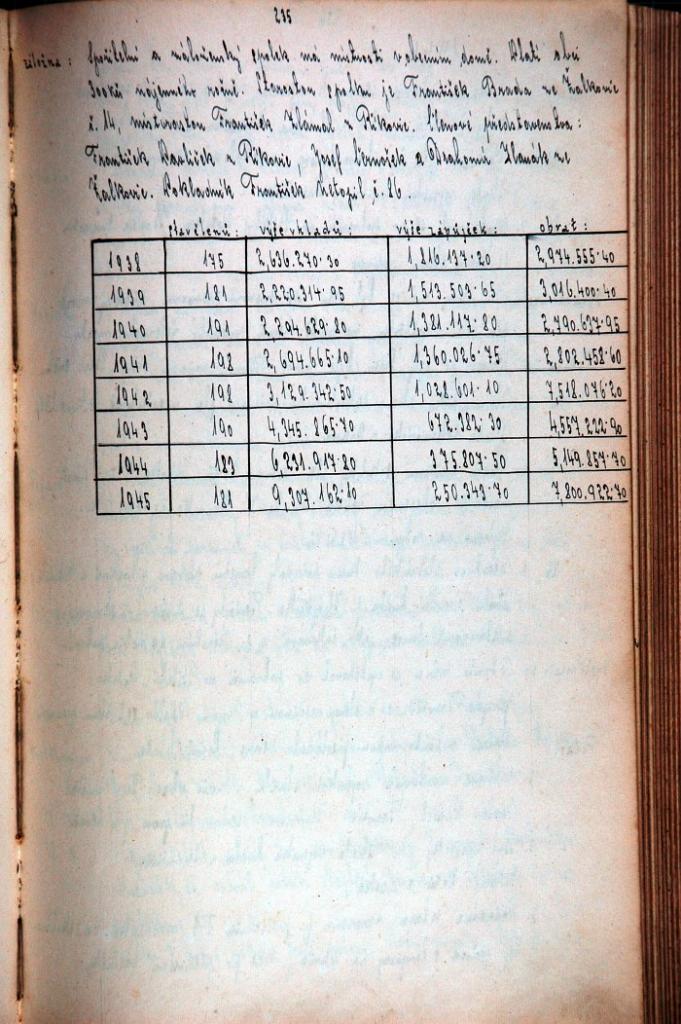 235
záložna : Spořitelní a záloženský spolek má místnosti v obecním domě. Platí obci
300 Kč nájemného ročně. Starostou spolku je František Brada ze Žalkovic
č. 14, místostarostou František Zdámal z Říkovic. Členové představenstva :
František Pavlíček z Říkovic, Josef a Drahomír ze
Žalkovic. Pokladník František č. 26
stav členů : výše vkladů : výše zápůjček : obrat :
1938 175 2,636.270·30 1,816.137·20 2,974.555·40
1939 181 2,220.314·95 1,513.503·65 3,016.400·40
1940 191 2,294.629·80 1,381.117·80 2,790.637·95
1941 198 2,694.665·10 1,360.026·75 2,802.458·60
1942 198 3,129.342·50 1,028.601·10 7,518.076·20
1943 190 4,345.865·70 672.382·30 4,557.222·90
1944 183 6,231.917·20 375.807·50 5,149.857·70
1945 181 9,307.162·10 250.343·70 7,800.922·70